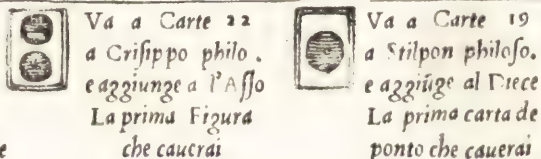 Va a Carte 22
a Criſippo philo.
e aggiunge a l'Aſſo
La prima Figura
che cauerai
Va a Carte 19
a Stilpon philoſo.
e aggiūge al Diece
La prima carta de
ponto che cauerai
e